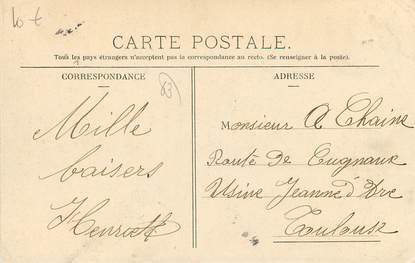 10 €
CARTE POSTALE.
Tous les pays étrangers n'acceptent pas la correspondance au recto. (Se renseigner à la poste).
CORRESPONDANCE
ADRESSE
83
Mille
baisers
Monsieur A Chaine
Route de
Usine Jeanne d'Arc
Toulouse